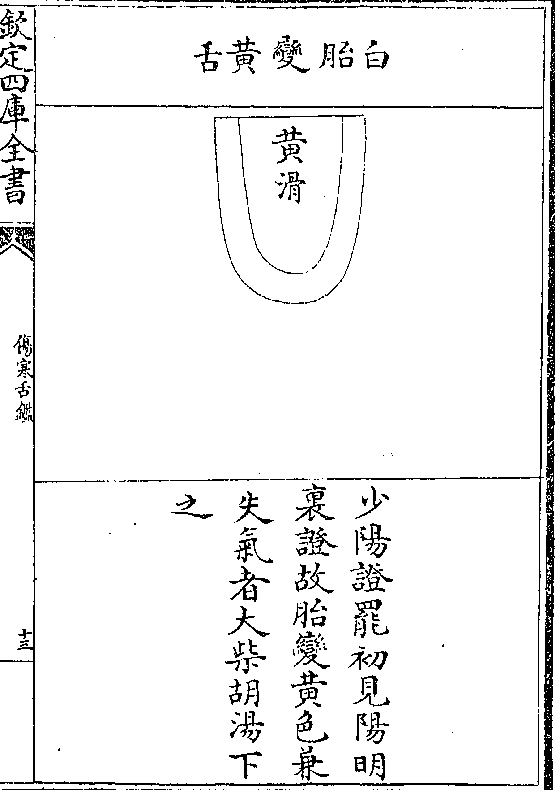 白胎變黄舌
黄滑
少陽證罷初見陽明
裏證故胎變黄色兼
失氣者大柴胡湯下
之
欽定四庫全書
傷寒舌鑑
十三